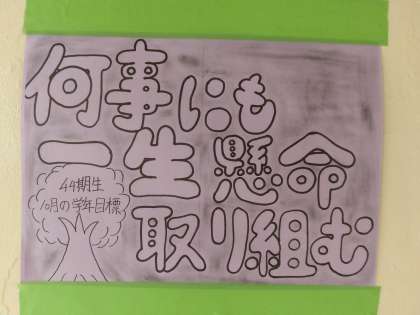 何事にも
一生懸命
取り組む
44期生
10月の学年目標